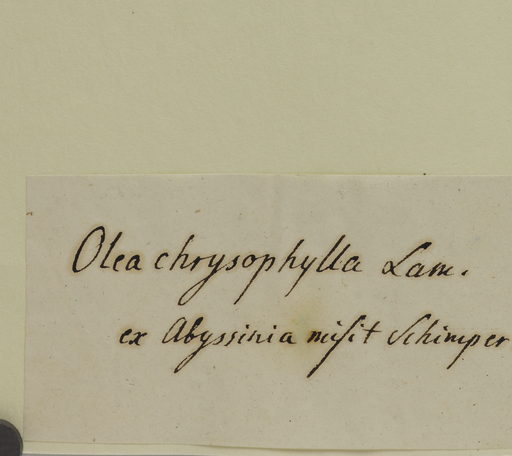 Olea chrysophylla Lam.
ex Abyssinia misit Schimper